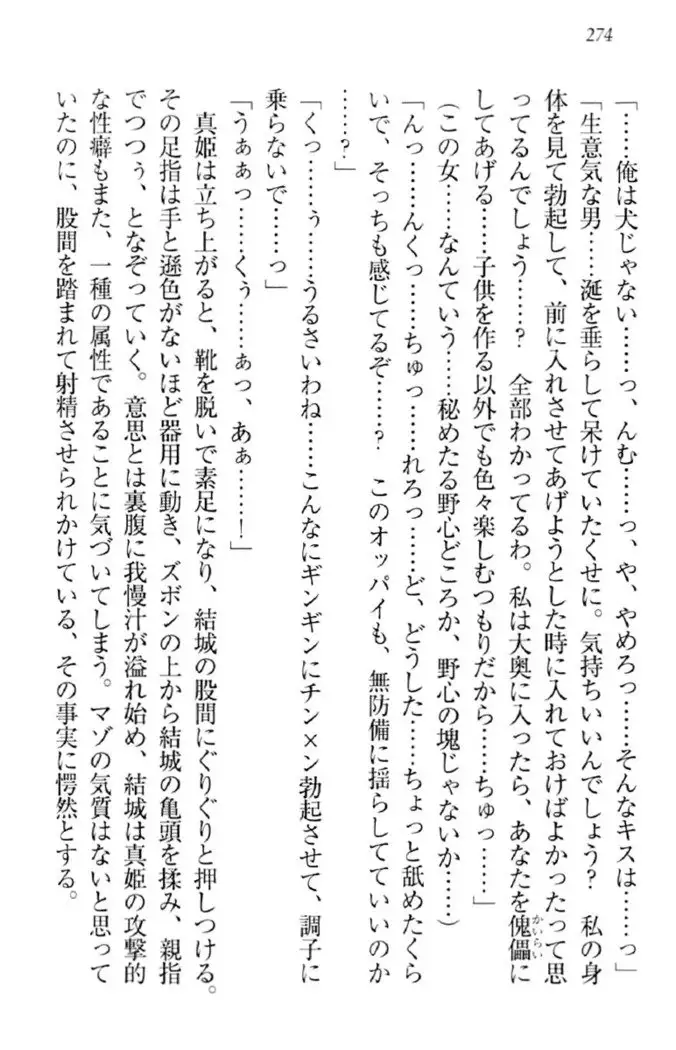 274
「……俺は犬じゃない……っ、んむ……っ、や、やめろっ……そんなキスは……っ」
「生意気な男……涎を垂らして呆けていたくせに。気持ちいいんでしょう？　私の身
体を見て勃起して、前に入れさせてあげようとした時に入れておけばよかったって思
ってるんでしょう……？　全部わかってるわ。私は大奥に入ったら、あなたを傀儡に
かいらい
してあげる……子供を作る以外でも色々楽しむつもりだから……ちゅっ……」
（この女……なんていう……秘めたる野心どころか、野心の塊じゃないか……）
「んっ……んくっ……ちゅっ……れろっ……ど、どうした……ちょっと舐めたくら
いで、そっちも感じてるぞ……？　このオッパイも、無防備に揺らしてていいのか
……？」
「くっ……ぅ……うるさいわね……こんなにギンギンにチン×ン勃起させて、調子に
乗らないで……っ」
「うぁぁっ……くぅ……ぁっ、あぁ……！」
真姫は立ち上がると、靴を脱いで素足になり、結城の股間にぐりぐりと押しつける。
その足指は手と遜色がないほど器用に動き、ズボンの上から結城の亀頭を揉み、親指
でつつぅ、となぞっていく。意思とは裏腹に我慢汁が溢れ始め、結城は真姫の攻撃的
な性癖もまた、一種の属性であることに気づいてしまう。マゾの気質はないと思って
いたのに、股間を踏まれて射精させられかけている、その事実に愕然とする。